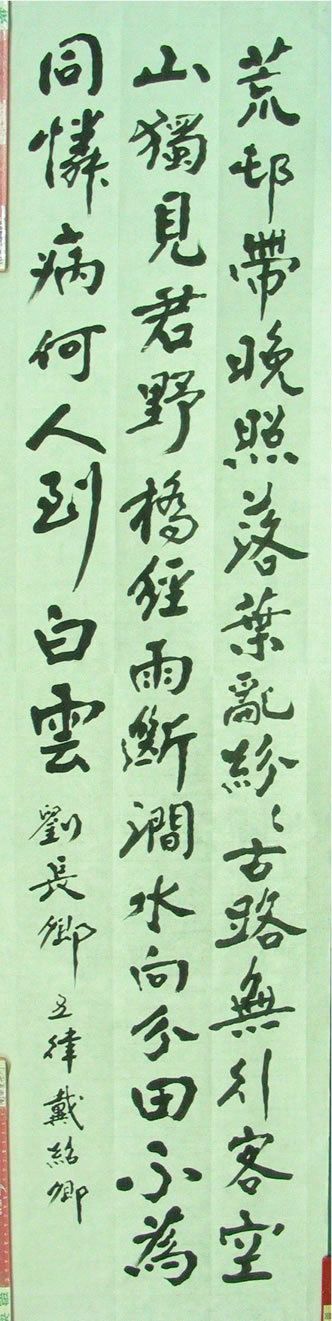 荒邨帶晚照落葉亂紛〻古路無行客空
山獨見君野橋經雨斷澗水向分田不為
同憐病何人到白雲劉長卿五律戴紹卿